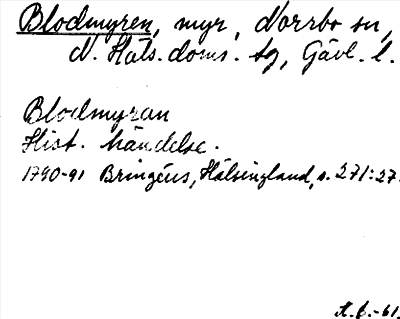 Blodmyren, myr, Norrbo sn,
N. Häls. doms. tg, Gävl. l.
Blodmyran
Hist. händelse.
1790-91 Bringéus, Hälsingland, s. 271:27